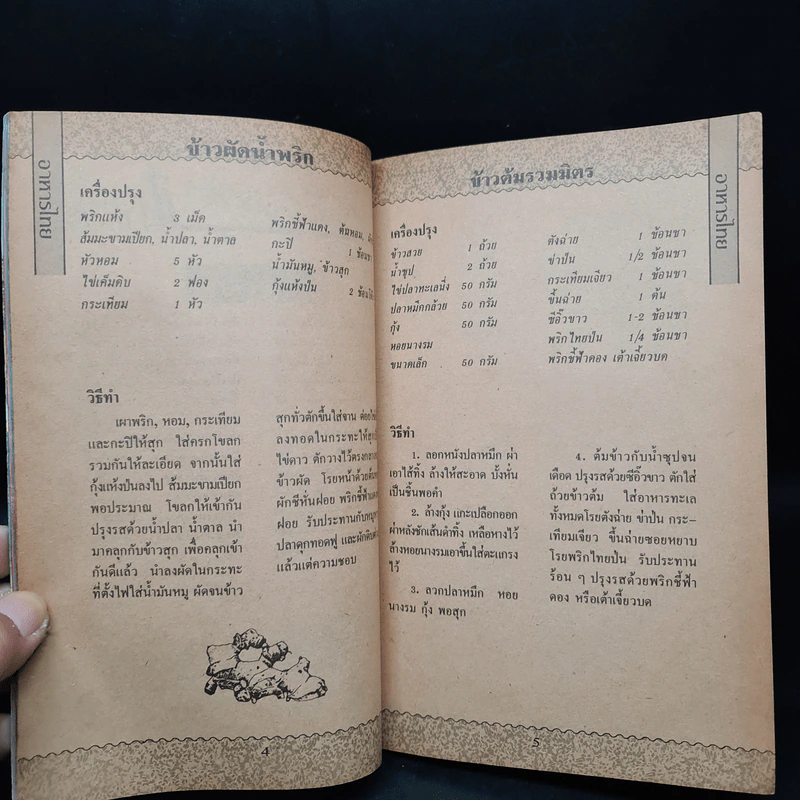 อาหารไทย
ข้าวผัดน้ำพริก
เครื่องปรุง
พริกแห้ง 3 เม็ด
ส้มมะขามเปียก, น้ำปลา, น้ำตาล
หัวหอม 5 หัว
ไข่เค็มดิบ 2 ฟอง
กระเทียม 1 หัว
พริกชี้ฟ้าแดง, ต้นหอม,
กะปิ 1 ช้อนชา
น้ำมันหมู, ข้าวสุก
กุ้งแห้งป่น 2
วิธีทำ
เผาพริก, หอม, กระเทียม
และกะปิให้สุก ใส่ครกโขลก
รวมกันให้ละเอียด จากนั้นใส่
กุ้งแห้งป่นลงไป ส้มมะขามเปียก
พอประมาณ โขลกให้เข้ากัน
ปรุงรสด้วยน้ำปลา น้ำตาล นำ
มาคลุกกับข้าวสุก เพื่อคลุกเข้า
กันดีแล้ว นำลงผัดในกระทะ
ที่ตั้งไฟใส่น้ำมันหมู ผัดจนข้าว
สุกทั่วตักขึ้นใส่จาน
ลงทอดในกระทะให้สุก
ไข่ดาว ตักวางไว้ตรงกลาง
ข้าวผัด โรยหน้าด้วย
ผักชีหั่นฝอย พริกชี้ฟ้าแดง
ฝอย รับประทานกับหมู
ปลาดุกทอดฟู และผักดิบ
แล้วแต่ความชอบ
4
ข้าวต้มรวมมิตร
อาหารไทย
เครื่องปรุง
ข้าวสวย 1 ถ้วย
น้ำซุป 2 ถ้วย
ไข่ปลาทะเลนึ่ง 50 กรัม
ปลาหมึกกล้วย 50 กรัม
กุ้ง 50 กรัม
หอยนางรม
ขนาดเล็ก 50 กรัม
ตังฉ่าย 1 ช้อนชา
ข่าป่น 1/2 ช้อนชา
กระเทียมเจียว 1 ช้อนชา
ขึ้นฉ่าย 1 ต้น
ซีอิ๊วขาว 1-2 ช้อนชา
พริกไทยป่น 1/4 ช้อนชา
พริกชี้ฟ้าดอง เต้าเจี้ยวบด
วิธีทำ
1. ลอกหนังปลาหมึก ผ่า
เอาไส้ทิ้ง ล้างให้สะอาด บั้งหั่น
เป็นชิ้นพอคำ
2. ล้างกุ้ง แกะเปลือกออก
ผ่าหลังชักเส้นดำทิ้ง เหลือหางไว้
ล้างหอยนางรมเอาขึ้นใส่ตะแกรง
ไว้
3. ลวกปลาหมึก หอย
นางรม กุ้ง พอสุก
4. ต้มข้าวกับน้ำซุปจน
เดือด ปรุงรสด้วยซีอิ๊วขาว ตักใส่
ถ้วยข้าวต้ม ใส่อาหารทะเล
ทั้งหมดโรยตังฉ่าย ข่าป่น กระ-
เทียมเจียว ขึ้นฉ่ายซอยหยาบ
โรยพริกไทยป่น รับประทาน
ร้อน ๆ ปรุงรสด้วยพริกชี้ฟ้า
ดอง หรือเต้าเจี้ยวบด
5